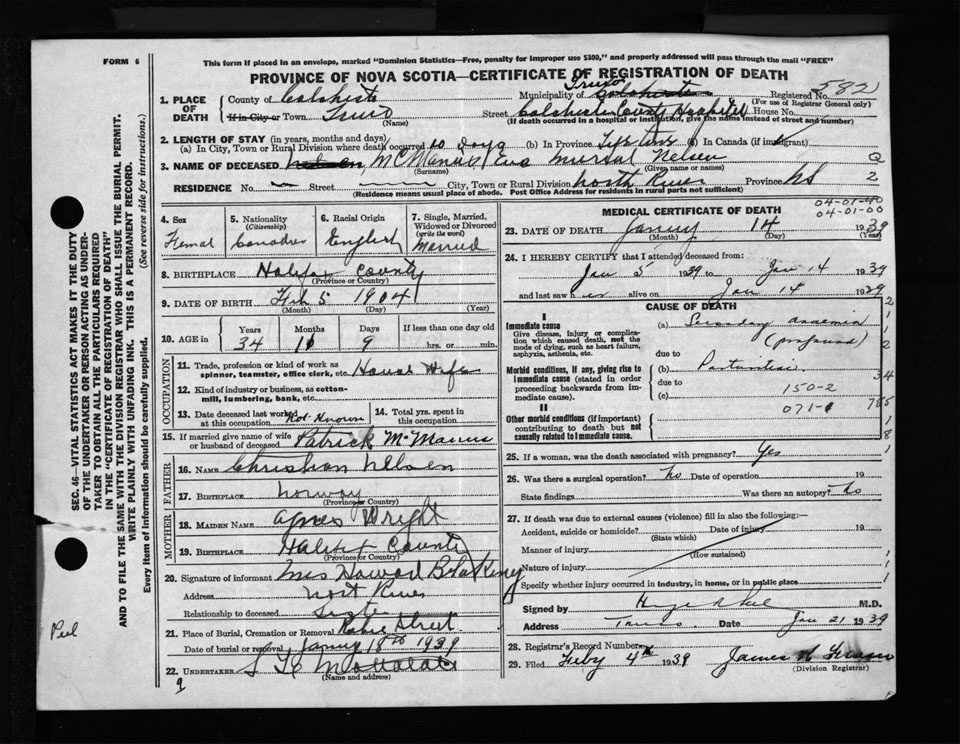 FORM 6
This form if placed in an envelope, marked "Dominion Statistics—Free, penalty for improper use $300," and properly addressed will pass through the mail "FREE"
PROVINCE OF NOVA SCOTIA—CERTIFICATE OF REGISTRATION OF DEATH
SEC. 46—VITAL STATISTICS ACT MAKES IT THE DUTY
OF THE UNDERTAKER OR PERSON ACTING AS UNDER-
TAKER TO OBTAIN ALL THE PARTICULARS REQUIRED
IN THE "CERTIFICATE OF REGISTRATION OF DEATH"
AND TO FILE THE SAME WITH THE DIVISION REGISTRAR WHO SHALL ISSUE THE BURIAL PERMIT.
WRITE PLAINLY WITH UNFADING INK. THIS IS A PERMANENT RECORD.
Every item of Information should be carefully supplied. (See reverse side for instructions.)
Peel
1. PLACE OF DEATH County of Colchester Municipality of Truro Colchester Registered No. 582
(For use of Registrar General only)
If in City or Town Truro (Name) Street Colchester County Hospital House No.
(If death occurred in a hospital or institution, give the name instead of street and number)
2. LENGTH OF STAY (in years, months and days)
(a) In City, Town or Rural Division where death occurred 10 Days (b) In Province Life time (c) In Canada (if immigrant)
3. NAME OF DECEASED Nelsen, McManus Eva Nelsen
(Surname) (Given name or names)
RESIDENCE No. Street City, Town or Rural Division North River Province NS
(Residence means usual place of abode. Post Office Address for residents in rural parts not sufficient)
Q
2
4. Sex Femal
5. Nationality (Citizenship) Canadian
6. Racial Origin English
7. Single, Married, Widowed or Divorced (write the word) Married
8. BIRTHPLACE Halifax County
(Province or Country)
9. DATE OF BIRTH Feb 5 1904
(Month) (Day) (Year)
10. AGE in Years Months Days If less than one day
34 11 9 hrs. or min.
OCCUPATION
11. Trade, profession or kind of work as spinner, teamster, office clerk, etc. House Wife
12. Kind of industry or business, as cotton-mill, lumbering, bank, etc.
13. Date deceased last worked at this occupation Not Known
14. Total yrs. spent in this occupation
15. If married give name of wife or husband of deceased Patrick McManus
FATHER
16. NAME Christian Nelsen
17. BIRTHPLACE Norway
(Province or Country)
MOTHER
18. MAIDEN NAME Agnes Wright
19. BIRTHPLACE Halifax County
(Province or Country)
20. Signature of informant Mrs Howard Blakeney
Address Nort River
Relationship to deceased Sister
21. Place of Burial, Cremation or Removal Robie Street
Date of burial or removal Janny 18th 1939
22. UNDERTAKER
(Name and address)
9
MEDICAL CERTIFICATE OF DEATH
04-01-40
04-01-00
23. DATE OF DEATH Janny 14 1939
(Month) (Day) (Year)
24. I HEREBY CERTIFY that I attended deceased from:
Jan 5 1939 to Jan 14 1939
and last saw her alive on Jan 14 1939
CAUSE OF DEATH
I
Immediate cause
Give disease, injury or complication which caused death, not the mode of dying, such as heart failure, asphyxia, asthenia, etc.
(a) Secondary anaemia
(profound)
due to
Morbid conditions, if any, giving rise to immediate cause (stated in order proceeding backwards from immediate cause)
(b) Parturition
due to
150-2
(c)
071-1
II
Other morbid conditions (if important) contributing to death but not causally related to immediate cause.
25. If a woman, was the death associated with pregnancy? Yes
26. Was there a surgical operation? No Date of operation 19
State findings Was there an autopsy? No
27. If death was due to external causes (violence) fill in also the following:—
Accident, suicide or homicide? Date of injury 19
(State which)
Manner of injury
(How sustained)
Nature of injury
Specify whether injury occurred in industry, in home, or in public place
Signed by M.D.
Address Truro Date Jan 21 1939
28. Registrar's Record Number
29. Filed Feby 4th 1939 James A
(Division Registrar)